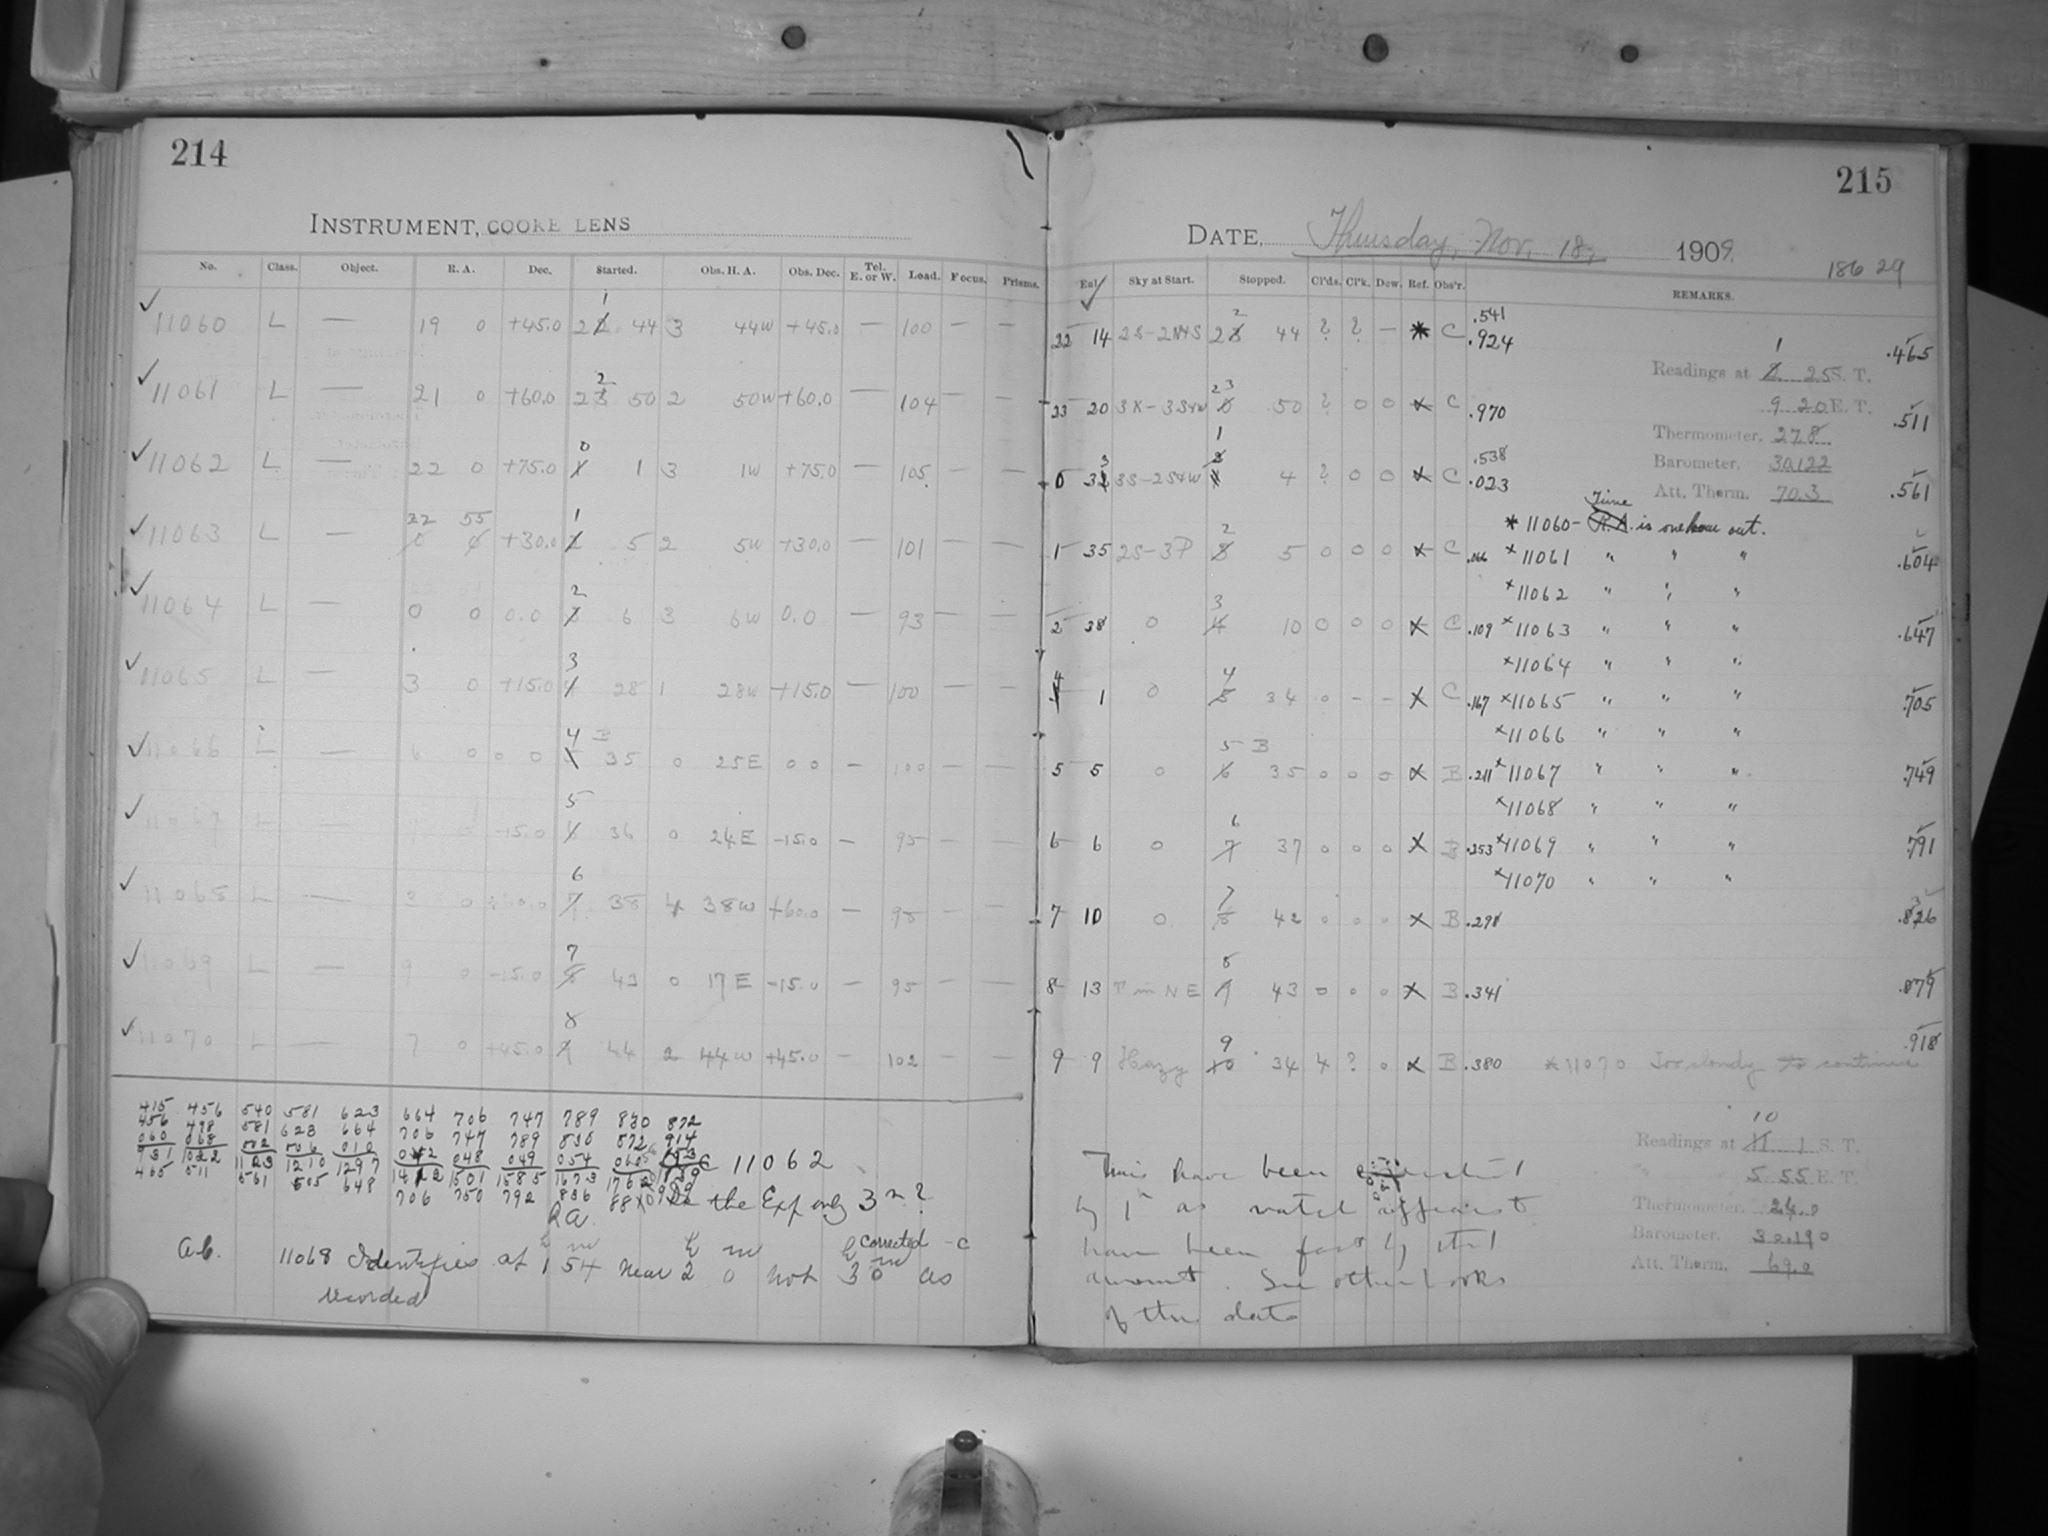 214
INSTRUMENT, COOKE LENS
No. Class. Object. R. A. Dec. Started. Obs. H. A. Obs. Dec. Tel. E. or W. Load. Focus. Prisms.
11060 L — 19 0 +45.0 44 3 44w +45.0 — 100 — —
11061 L — 21 0 +60.0 50 2 50w +60.0 — 104 — —
11062 L — 22 0 +75.0 0 1 3 1w +75.0 — 105 — —
11063 L — 22 55 +30.0 1 5 2 5w +30.0 — 101 — —
11064 L — 0 0 0.0 2 6 3 6w 0.0 — 93 — —
11065 L — 3 0 +15.0 3 28 1 28w +15.0 — 100 — —
11066 L — 6 0 0 0 4 B 35 0 25E 0 0 — 100 — —
11067 L — -15.0 5 36 0 24E -15.0 — 95 — —
11068 L — 0 +60.0 6 38 4 38w +60.0 — 95 — —
11069 L — 9 0 -15.0 7 43 0 17E -15.0 — 95 — —
11070 L — 7 0 +45.0 8 44 2 44w +45.0 — 102 — —
415 456 540 581 623 664 706 747 789 830 872
456 498 581 623 664 706 747 789 830 872 914
060 068 010 048 049 054
931 1022 1123 1210 1297 1501 1585 1673
465 511 561 605 648 706 750 792 836
11062
the Exp only 3m?
R.A.
corrected -C
11068 Identifies at 1h 54m near 2h 0m not 3h 0m as
recorded
215
DATE, Thursday, Nov. 18, 1909
186 29
Exp. Sky at Start. Stopped. Cl'ds. Cl'k. Dew. Ref. Obs'r. REMARKS.
22 14 2S-2N4S 44 ? ? — * C .541 .924 .465
23 20 50 ? 0 0 * C .970 .511
0 3S-2S4W 1 4 ? 0 0 * C .538 .023 .561
1 35 2S-3P 2 5 0 0 0 * C .066 .604
2 38 0 3 10 0 0 0 * C .109 .647
4 1 0 4 34 0 — — * C .167 .705
5 5 0 5 B 35 0 0 0 * B .211 .749
6 6 0 6 37 0 0 0 * B .253 .791
7 10 0 7 42 0 0 0 * B .298
8 13 T in NE 8 43 0 0 0 * B .341 .879
9 9 Hazy 9 34 4 ? 0 * B .380 .918
Readings at 1 25 S. T.
9 20 E. T.
Thermometer, 27.8
Barometer, 30.122
Att. Therm. 70.3
Time
* 11060- R.A. is one hour out.
*11061 " " "
*11062 " " "
*11063 " " "
*11064 " " "
*11065 " " "
*11066 " " "
*11067 " " "
*11068 " " "
*11069 " " "
*11070 " " "
*11070 Too cloudy to continue
Readings at 10 1 S. T.
5 55 E. T.
Thermometer, 24.0
Barometer, 30.190
Att. Therm. 69.0
Times have been corrected
by 1h as watch appears to
have been fast by that
amount. See other books
of this date